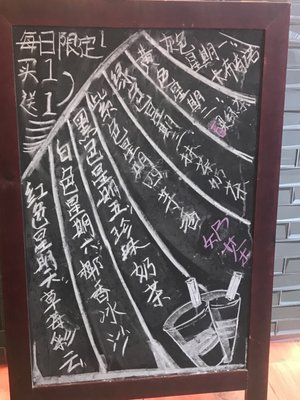 每日限定!
买1
送1
色星期一
黄色星期二
绿色星期三抹茶奶茶
紫色星期四芋香奶茶
黑色星期五珍珠奶茶
白色星期六椰香冰沙
红色星期六草莓彩云